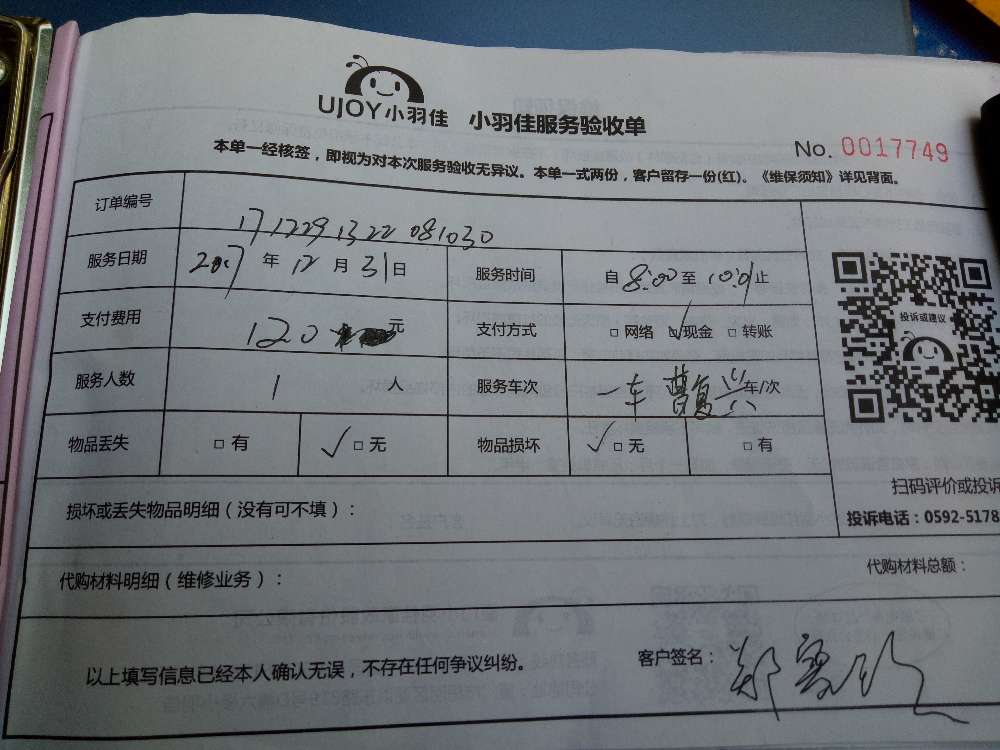 UJOY小羽佳 小羽佳服务验收单
No. 0017749
本单一经核签，即视为对本次服务验收无异议。本单一式两份，客户留存一份(红)。《维保须知》详见背面。
订单编号 1712291322081030
服务日期 2017年12月31日 服务时间 自8:00至10:01止
支付费用 120 元 支付方式 □网络 ☑现金 □转账
服务人数 1 人 服务车次 一车 车/次
物品丢失 □有 ✓□无 物品损坏 ✓□无 □有
投诉或建议
扫码评价或投诉
投诉电话：0592-5178
损坏或丢失物品明细（没有可不填）：
代购材料明细（维修业务）： 代购材料总额：
以上填写信息已经本人确认无误，不存在任何争议纠纷。 客户签名：郑